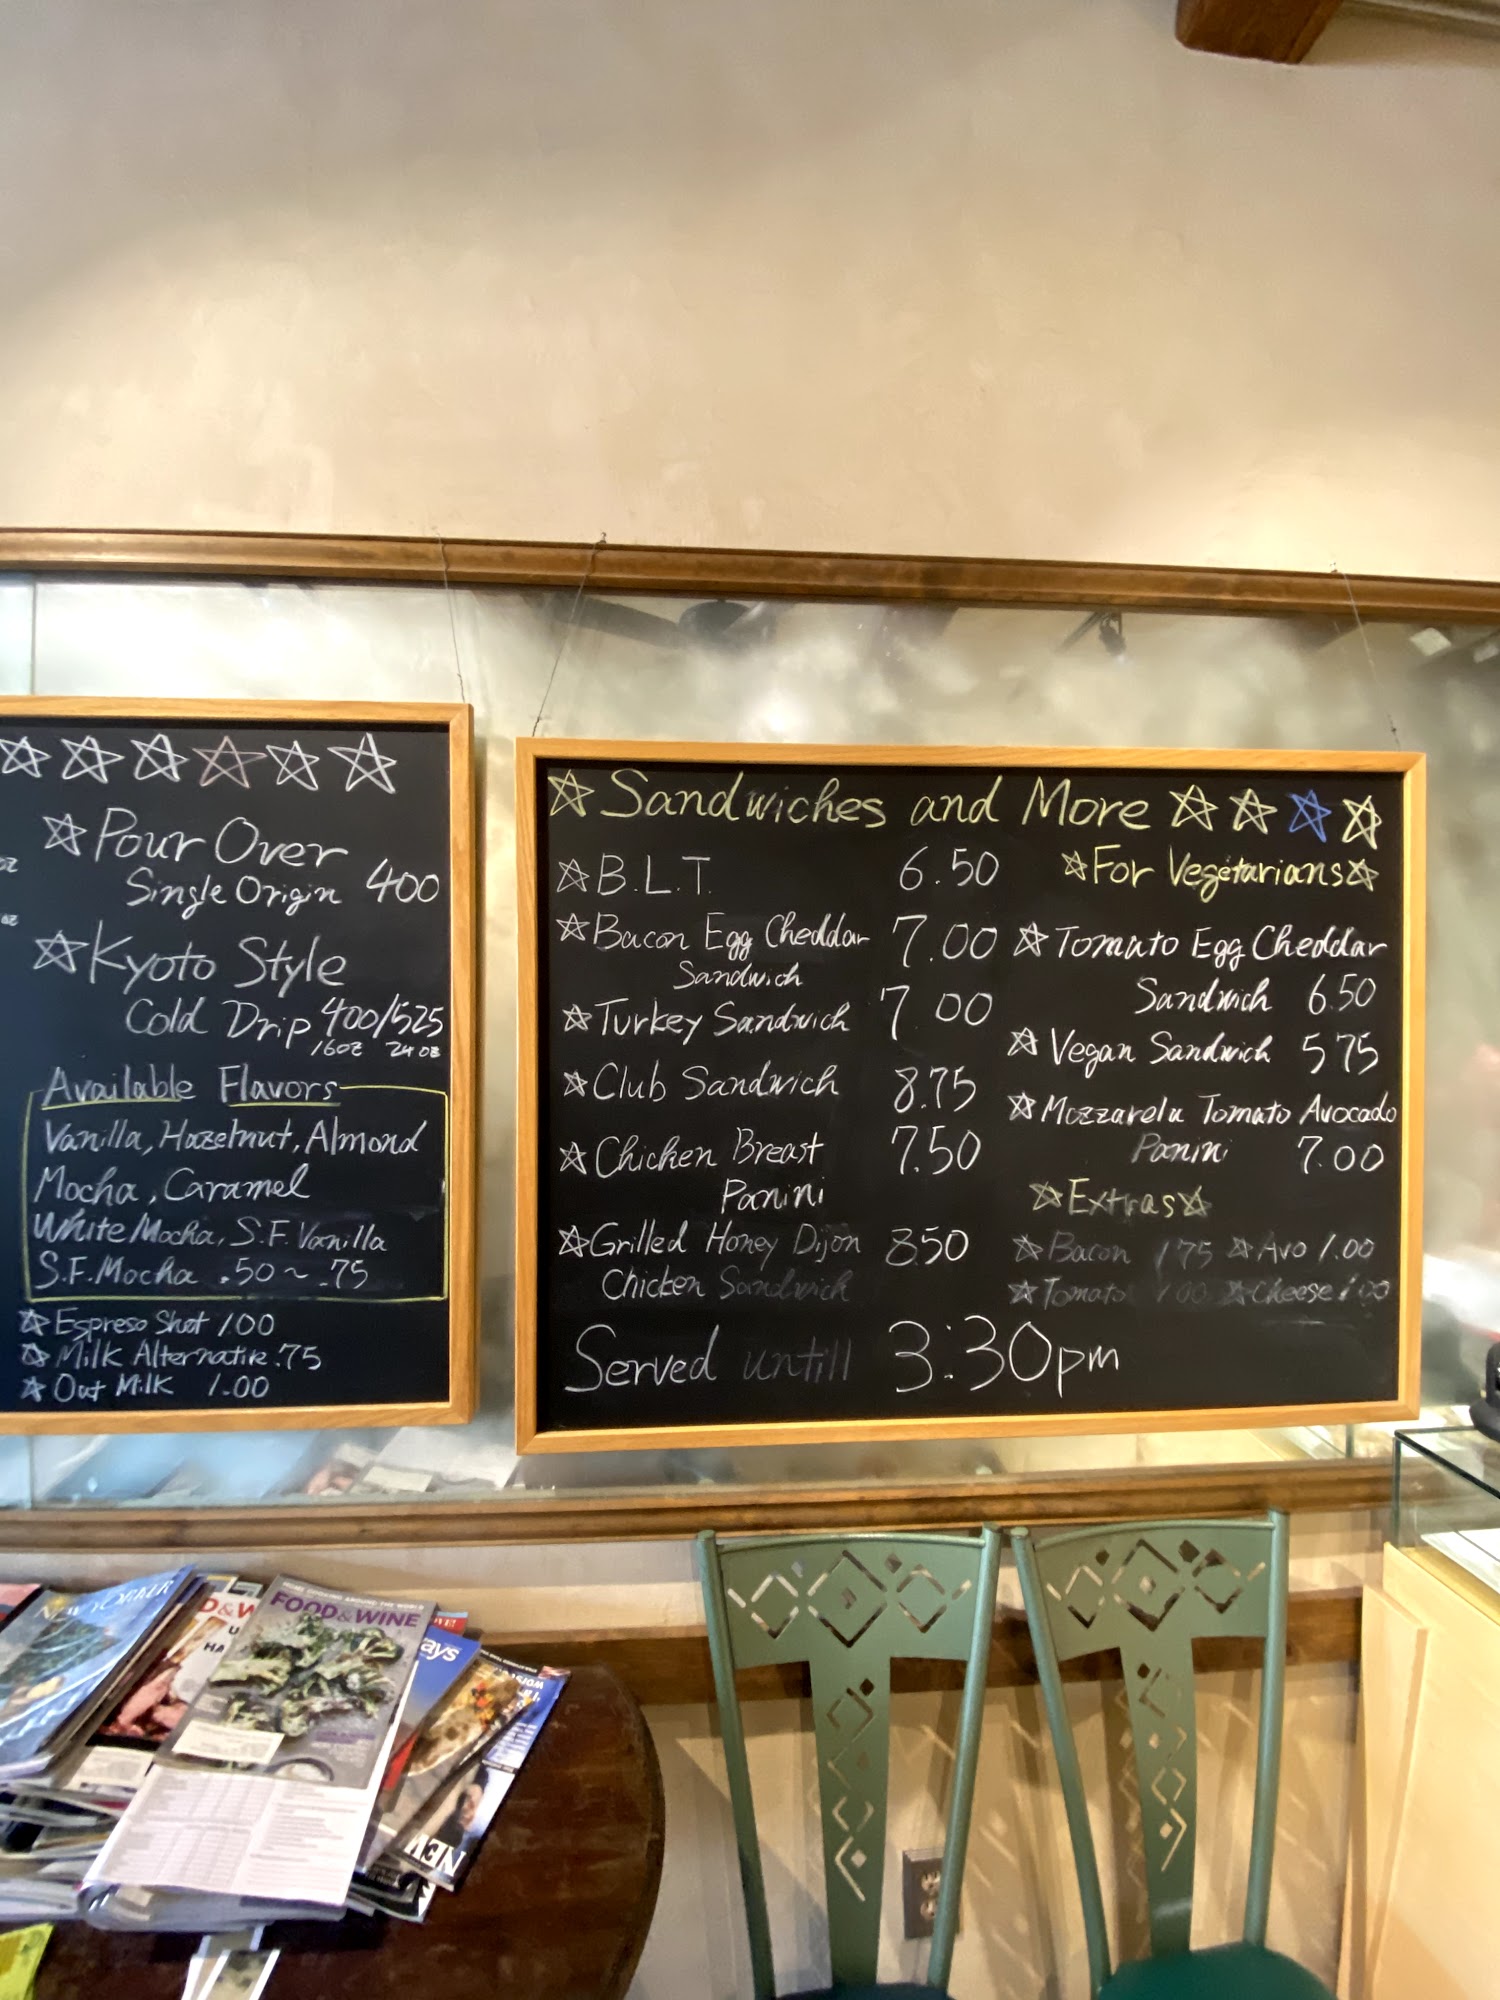 Pour Over
Single Origin 400
Kyoto Style
Cold Drip 400/525
16oz 24oz
Available Flavors
Vanilla, Hazelnut, Almond
Mocha, Caramel
White Mocha, S.F. Vanilla
S.F. Mocha .50 ~ .75
Espreso Shot 1.00
Milk Alternative .75
Oat Milk 1.00
Sandwiches and More
B.L.T. 6.50
Bacon Egg Cheddar 7.00
Sandwich
Turkey Sandwich 7.00
Club Sandwich 8.75
Chicken Breast 7.50
Panini
Grilled Honey Dijon 850
Chicken Sandwich
For Vegetarians
Tomato Egg Cheddar
Sandwich 6.50
Vegan Sandwich 575
Mozzarela Tomato Avocado
Panini 7.00
Extras
Bacon 1.75 Avo 1.00
Tomato 1.00 Cheese 1.00
Served untill 3:30pm
NEW YORKER
FOOD & WINE
NEW